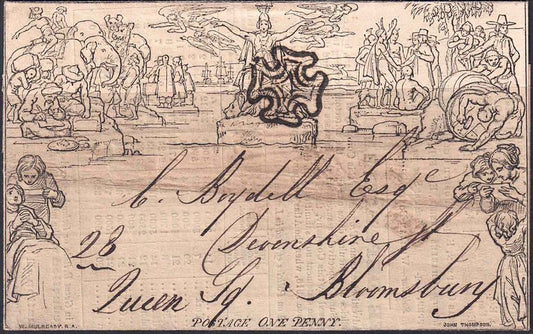 C. Boydell Esqr
28 Devonshire St
Queen Sq. Bloomsbury
POSTAGE ONE PENNY.
W. MULREADY. R.A.
JOHN THOMPSON.